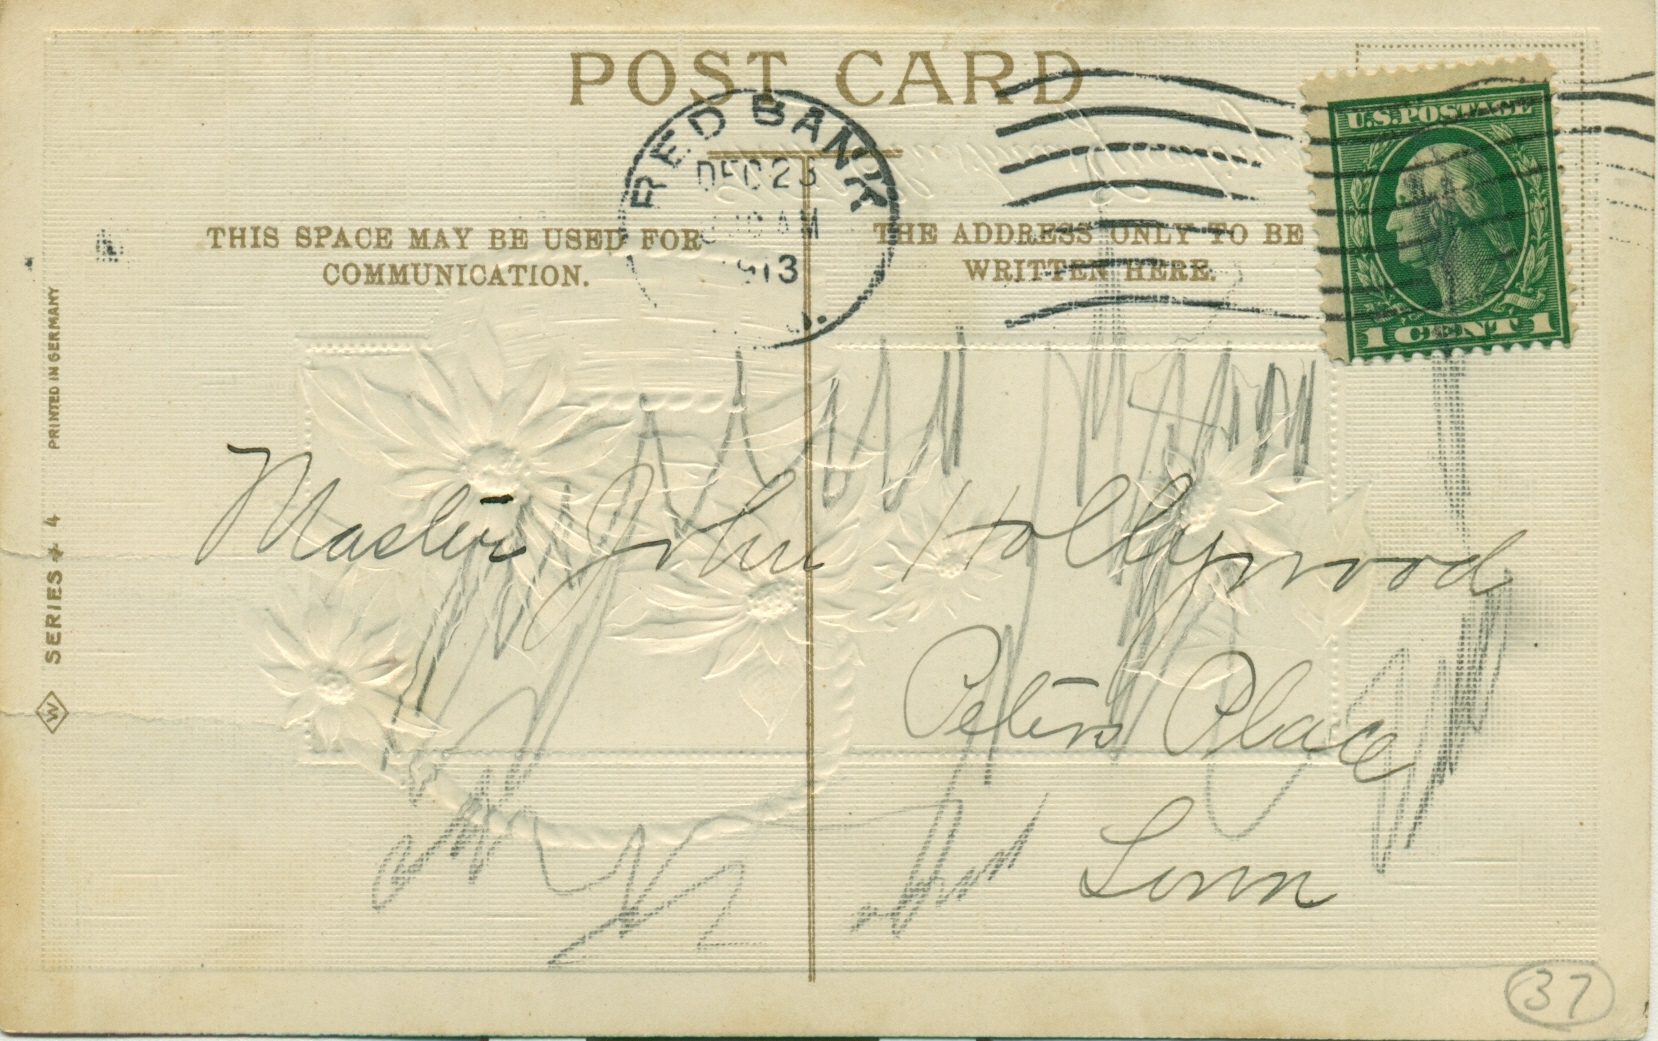 POST CARD
RED BANK
DEC 23
AM
1913
U.S. POSTAGE
1 CENT 1
THIS SPACE MAY BE USED FOR
COMMUNICATION.
THE ADDRESS ONLY TO BE
WRITTEN HERE.
PRINTED IN GERMANY
SERIES 4
W
Master John Hollywood
Peters Place
37